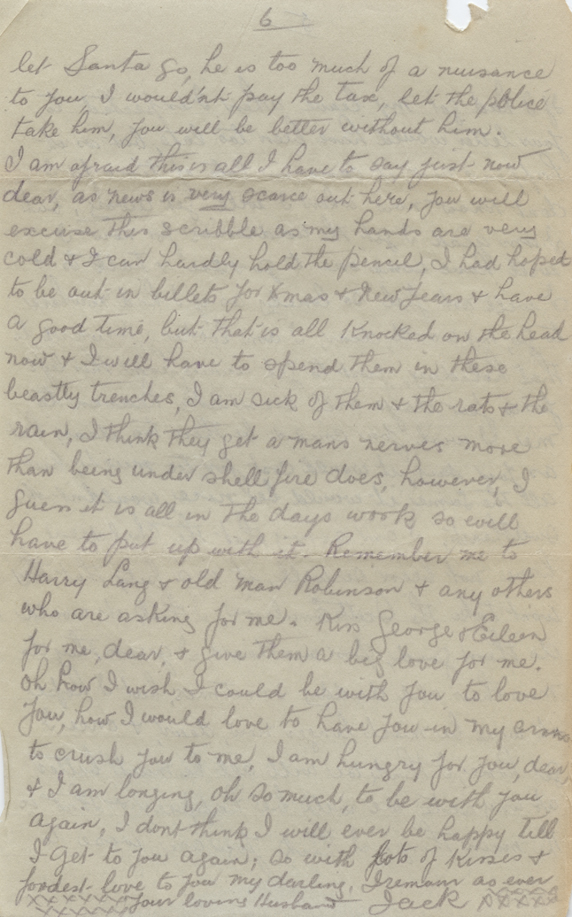 6
let Santa go, he is too much of a nuisance
to you, I would'nt pay the tax, let the police
take him, you will be better without him.
I am afraid this is all I have to say just now
dear, as news is very scarce out here, you will
excuse this scribble as my hands are very
cold & I can hardly hold the pencil, I had hoped
to be out in billets for Xmas & New Years & have
a good time, but that is all knocked on the head
now & I will have to spend them in these
beastly trenches, I am sick of them & the rats & the
rain, I think they get a mans nerves more
than being under shell fire does, however, I
guess it is all in the days work so will
have to put up with it. Remember me to
Harry Lang & old man Robinson & any others
who are asking for me. Kiss George & Eileen
for me, dear, & give them a big love for me.
Oh how I wish I could be with you to love
you, how I would love to have you in my arms
to crush you to me, I am hungry for you, dear,
& I am longing, oh so much, to be with you
again, I dont think I will ever be happy till
I get to you again; so with lots of kisses &
fondest love to you my darling, I remain as ever
xxxxxx your loving Husband Jack xxxx